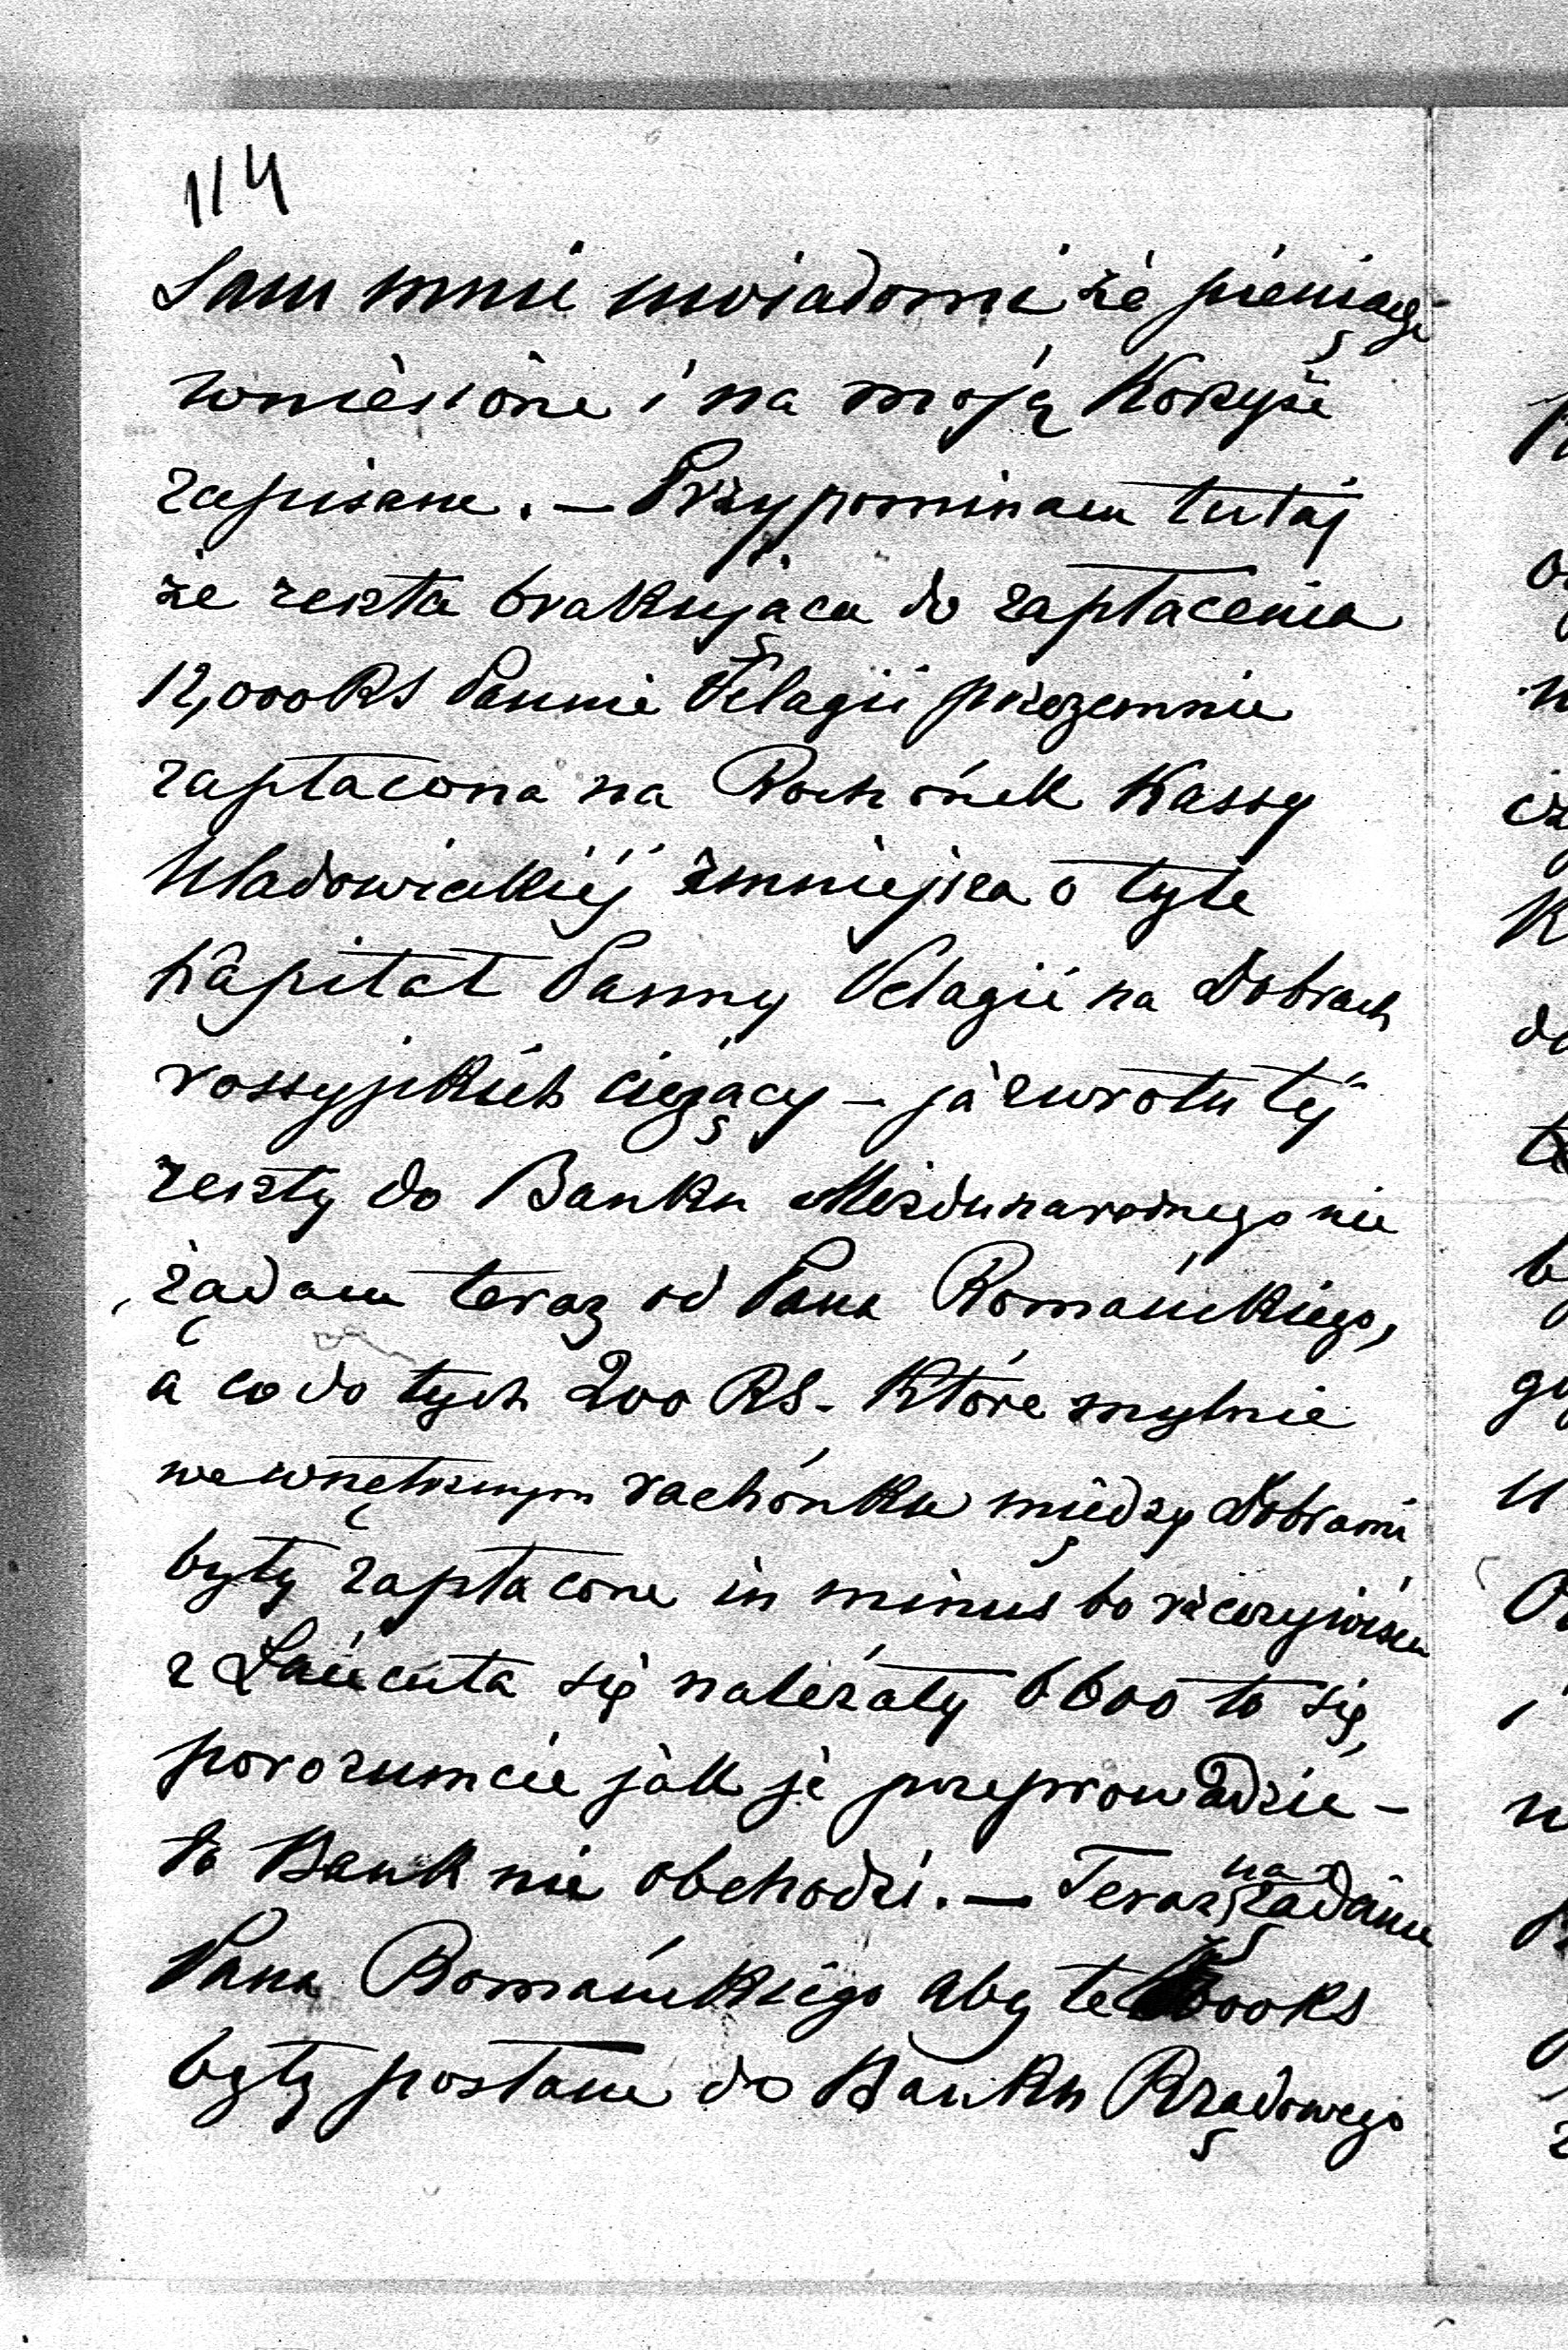 114
Sam mnie uwiadomi że pieniądze
wniesione i na moją Korzyść
zapisane. — Przypominam tutaj
że reszta brakująca do zapłacenia
12,000 RS Pannie Pelagii przezemnie
zapłacona na Rachónek Kassy
Uladowieckiéj zmniejsza o tyle
Kapitał Panny Pelagii na Dobrach
rossyjskich ciężący — ja zwrotu téj
reszty do Banku Mezdunarodnego nie
żądam teraz od Pana Romańskiego,
a co do tych 200 RS. Które mylnie
wewnętrznym rachónku między Dobrami
były zapłacone in minus bo rzeczywiście
z Łańcuta się należały 6600 to się
porozumcie jak je przeprowadzić —
to Bank nie obchodzi. — Teraz na żądanie
Pana Romańskiego aby te RS
były posłane do Banku Rządowego